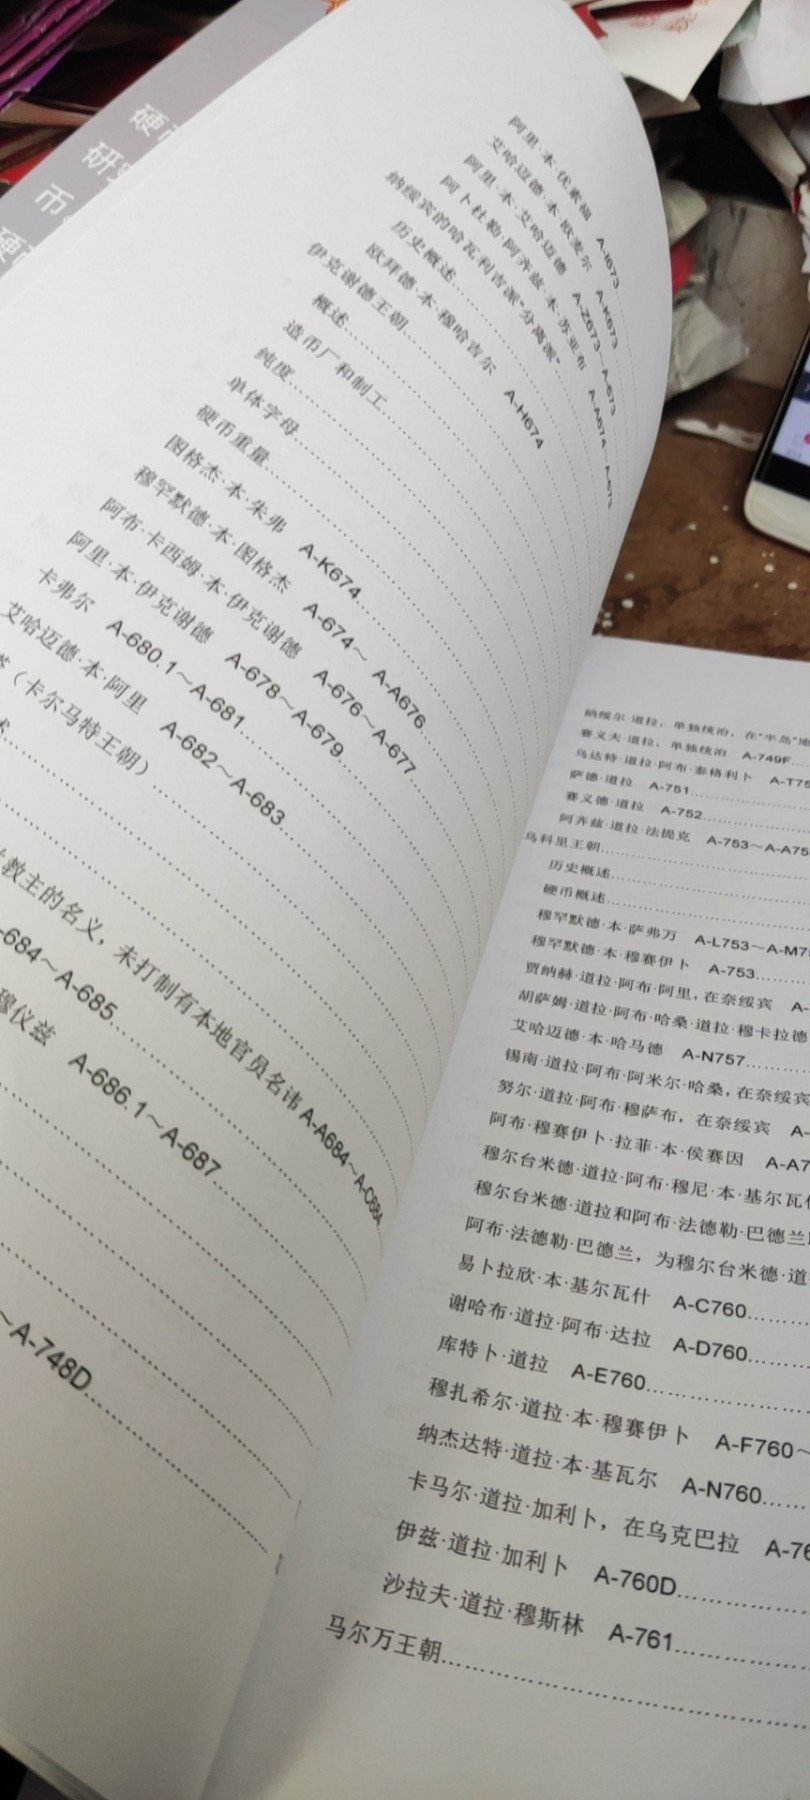 硬
研究
币
硬
阿里·本·优素福 A-I673
艾哈迈德·本·欧麦尔 A-K673
阿里·本·艾哈迈德 A-Z673～A-673
阿卜杜勒·阿齐兹·本·苏亚布 A-A674～A-673
纳绥宾的哈瓦利吉派“分离派”
历史概述
欧拜德·本·穆哈吉尔 A-H674
伊克谢德王朝
概述
造币厂和制工
纯度
单体字母
硬币重量
图格杰·本·朱弗 A-K674
穆罕默德·本·图格杰 A-674～A-A676
阿布·卡西姆·本·伊克谢德 A-676～A-677
阿里·本·伊克谢德 A-678～A-679
卡弗尔 A-680.1～A-681
艾哈迈德·本·阿里 A-682～A-683
（卡尔马特王朝）
述
教主的名义，未打制有本地官员名讳 A-A684～A-C684
-684～A-685
穆仪兹 A-686.1～A-687
～A-748D
纳绥尔·道拉，单独统治，在“半岛”地
赛义夫·道拉，单独统治 A-749F
乌达特·道拉·阿布·泰格利卜 A-T75
萨德·道拉 A-751
赛义德·道拉 A-752
阿齐兹·道拉·法提克 A-753～A-A75
乌科里王朝
历史概述
硬币概述
穆罕默德·本·萨弗万 A-L753～A-M7
穆罕默德·本·穆赛伊卜 A-753
贾纳赫·道拉·阿布·阿里，在奈绥宾 A-
胡萨姆·道拉·阿布·哈桑·道拉·穆卡拉德
艾哈迈德·本·哈马德 A-N757
锡南·道拉·阿布·阿米尔·哈桑，在奈绥宾
努尔·道拉·阿布·穆萨布，在奈绥宾 A-
阿布·穆赛伊卜·拉菲·本·侯赛因 A-A7
穆尔台米德·道拉·阿布·穆尼·本·基尔瓦什
穆尔台米德·道拉和阿布·法德勒·巴德兰
阿布·法德勒·巴德兰，为穆尔台米德·道
易卜拉欣·本·基尔瓦什 A-C760
谢哈布·道拉·阿布·达拉 A-D760
库特卜·道拉 A-E760
穆扎希尔·道拉·本·穆赛伊卜 A-F760～
纳杰达特·道拉·本·基瓦尔 A-N760
卡马尔·道拉·加利卜，在乌克巴拉 A-76
伊兹·道拉·加利卜 A-760D
沙拉夫·道拉·穆斯林 A-761
马尔万王朝